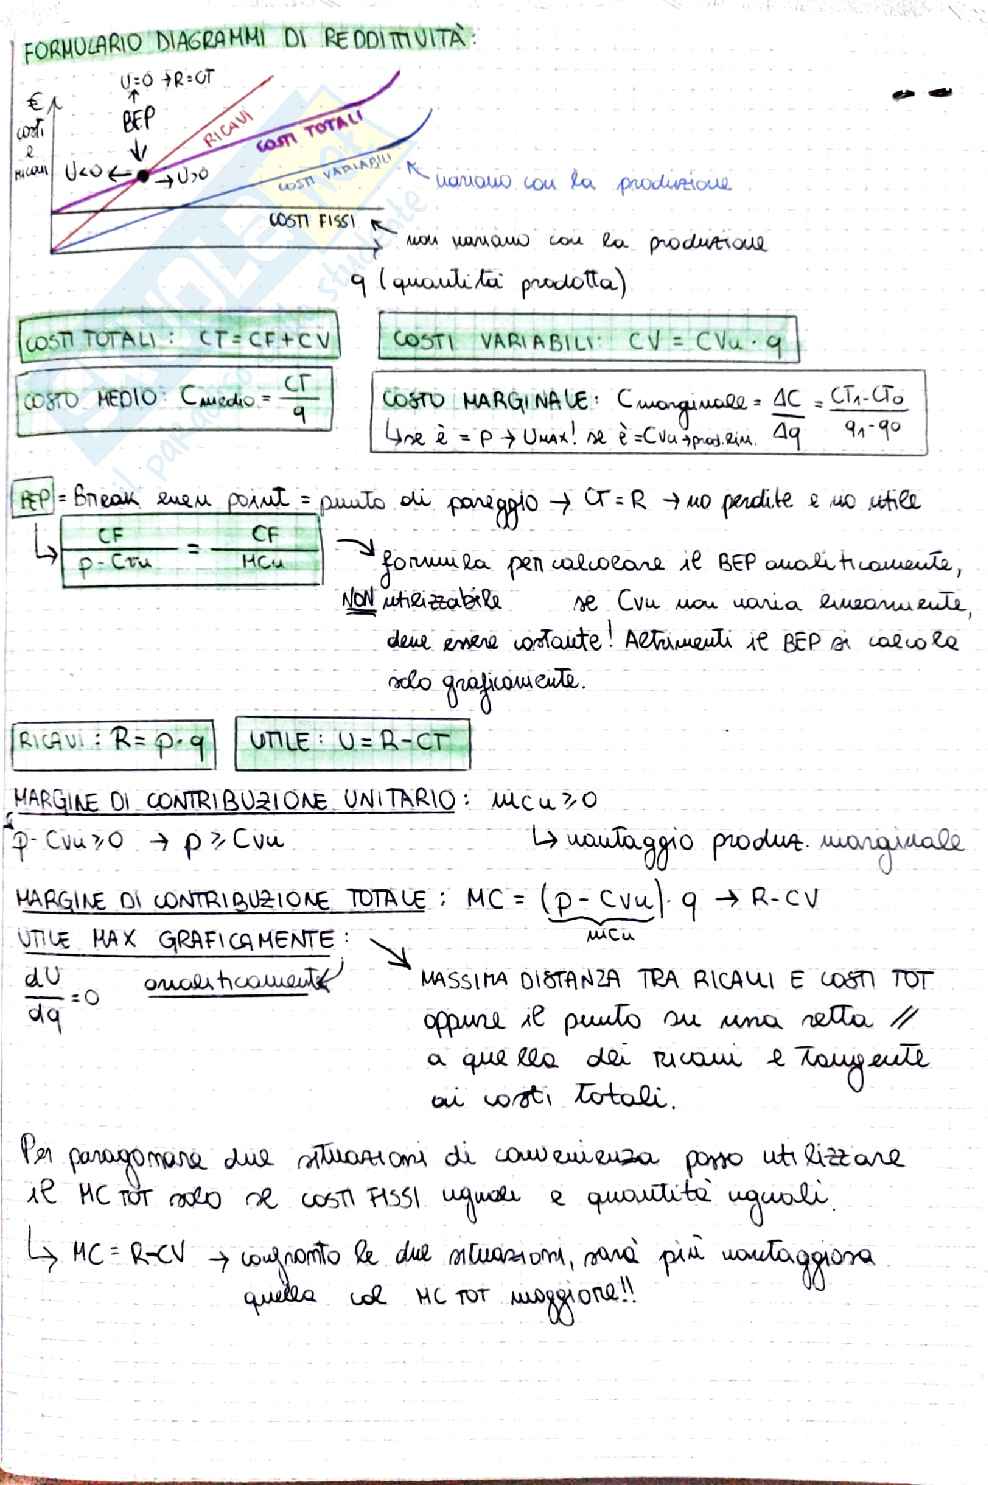 FORMULARIO DIAGRAMMI DI REDDITIVITÀ:
U=0 → R=CT
€
costi
e
ricavi
BEP
RICAVI
COSTI TOTALI
U<0 ← → U>0
COSTI VARIABILI
variano con la produzione
COSTI FISSI
non variano con la produzione
q (quantità prodotta)
COSTI TOTALI: CT = CF + CV
COSTI VARIABILI: CV = CVu · q
COSTO MEDIO: Cmedio = CT/q
COSTO MARGINALE: Cmarginale = ΔC/Δq = CT1-CT0/q1-q0
↳ se è = P → UMAX! se è = CVu →
BEP = Break even point = punto di pareggio → CT = R → no perdite e no utile
↳ CF/p - Cvu = CF/MCu
→ formula per calcolare il BEP analiticamente,
NON utilizzabile se Cvu non varia linearmente,
deve essere costante! Altrimenti il BEP si calcola
solo graficamente.
RICAVI: R = p · q
UTILE: U = R - CT
MARGINE DI CONTRIBUZIONE UNITARIO: mcu ≥ 0
p - Cvu ≥ 0 → p ≥ Cvu
↳ vantaggio produz. marginale
MARGINE DI CONTRIBUZIONE TOTALE: MC = (p - Cvu) · q → R - CV
mcu
UTILE MAX GRAFICAMENTE:
dU/dq = 0 analiticamente
MASSIMA DISTANZA TRA RICAVI E COSTI TOT
oppure il punto su una retta //
a quella dei ricavi e tangente
ai costi totali.
Per paragonare due situazioni di convenienza posso utilizzare
il MC TOT solo se COSTI FISSI uguali e quantità uguali.
↳ MC = R-CV → confronto le due situazioni, sarà più vantaggiosa
quella col MC TOT maggiore!!